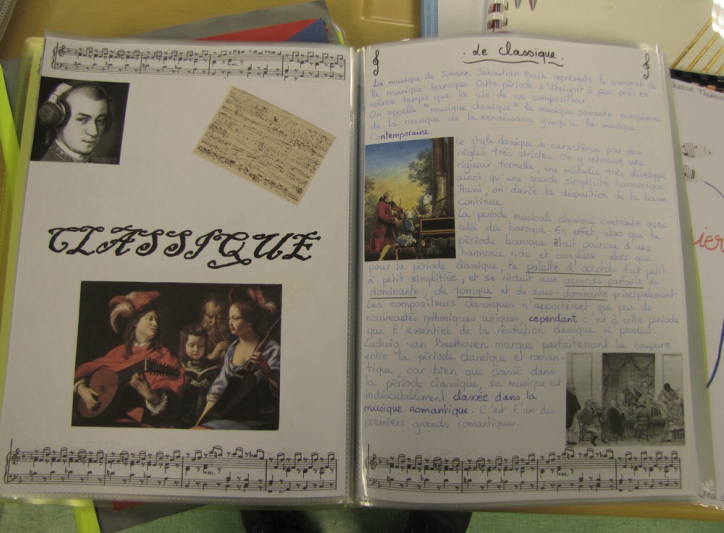 CLASSIQUE
. Le Classique .
La musique de Johann Sebastian Bach représente le sommet de
la musique baroque. Cette période s'éteignit à peu près en
même temps que la vie de ce compositeur.
On appelle "musique classique" la musique savante européenne
de la musique de la Renaissance jusqu'à la musique
Contemporaine.
Le style classique se caractérise par des
règles très strictes. On y retrouve une
rigueur formelle, une mélodie très développée
ainsi qu'une grande simplicité harmonique.
Aussi, on donne la disposition de la basse
continue.
La période musicale classique contraste avec
celle du baroque. En effet, alors que la
période baroque était pourvue d'une
harmonie riche et complexe, alors que
pour la période classique, la palette d'accords fut petit
à petit simplifiée, et se réduit aux accords parfaits de
dominante, de tonique et de sous-dominante principalement.
Les compositeurs classiques n'apportent que peu de
nouveautés rythmiques uniques, cependant c'est à cette période
que l'essentiel de la révolution classique se produit.
Ludwig van Beethoven marque parfaitement la coupure
entre la période classique et roman-
tique, car bien que classé dans
la période classique, sa musique est
indiscutablement classée dans la
musique romantique. C'est l'un des
premiers grands romantiques.